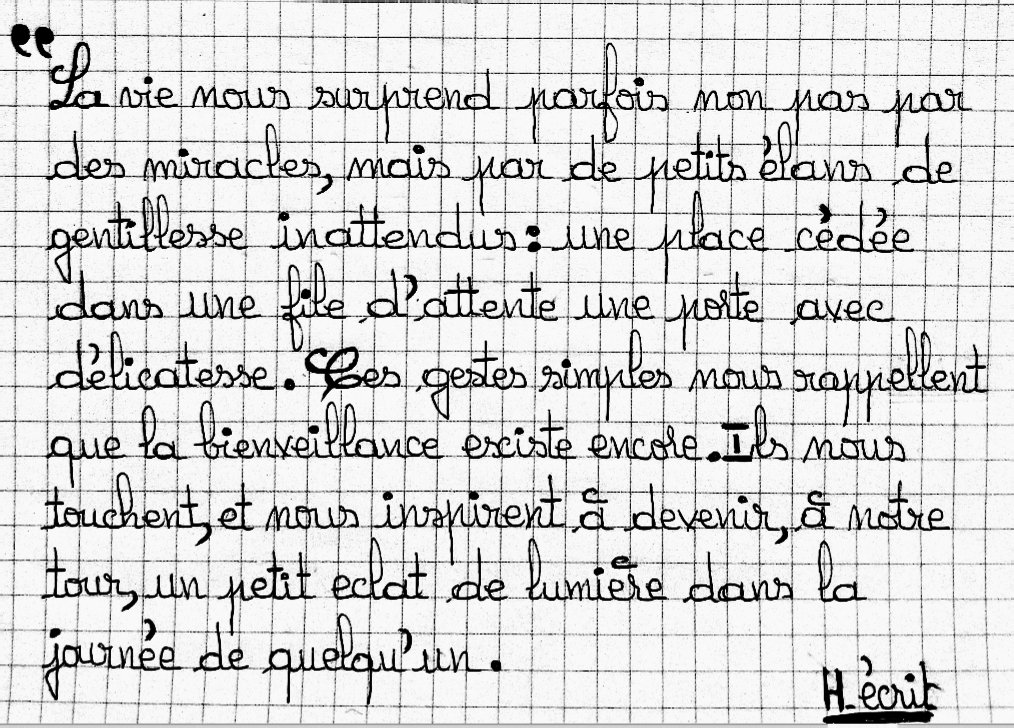 "La vie nous surprend parfois non pas par
des miracles, mais par de petits élans de
gentillesse inattendus : une place cédée
dans une file d'attente une porte avec
délicatesse. Ces gestes simples nous rappellent
que la bienveillance existe encore. Ils nous
touchent, et nous inspirent à devenir, à notre
tour, un petit eclat de lumière dans la
journée de quelqu'un.
H-écrit